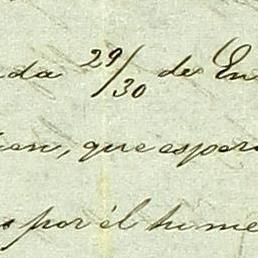 da 29/30 de En
ien, que esper
s por él tu me